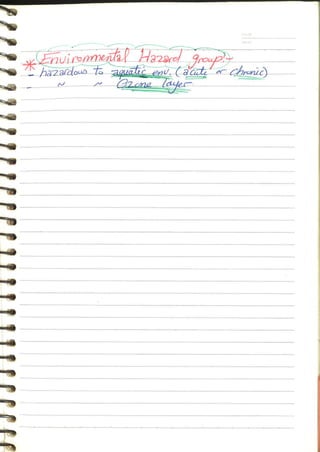 * Environmental Hazard group:-
- hazardous to aquatic env. (acute or chronic)
- ~ ~ Ozone layer